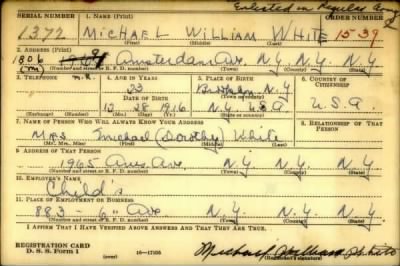 Enlisted in Regular Army
SERIAL NUMBER 1. NAME (Print) ORDER NUMBER
1372 MICHAEL WILLIAM WHITE 1539
(First) (Middle) (Last)
2. ADDRESS (Print)
1806 Amsterdam Ave. N.Y. N.Y. N.Y.
(Number and street or R. F. D. number) (Town) (County) (State)
3. TELEPHONE 4. AGE IN YEARS 5. PLACE OF BIRTH 6. COUNTRY OF CITIZENSHIP
23 Brooklyn N.Y.
DATE OF BIRTH (Town or county)
28 1916 N.Y. U.S.A. U.S.A.
(Mo.) (Day) (Yr.) (State or country)
7. NAME OF PERSON WHO WILL ALWAYS KNOW YOUR ADDRESS 8. RELATIONSHIP OF THAT PERSON
Mrs. Michael (Dorothy) White
(Mr., Mrs., Miss) (First) (Middle) (Last)
9. ADDRESS OF THAT PERSON
1965 Ams. Ave N.Y. N.Y. N.Y.
(Number and street or R. F. D. number) (Town) (County) (State)
10. EMPLOYER'S NAME
Child's
11. PLACE OF EMPLOYMENT OR BUSINESS
883 - 6" Ave N.Y. N.Y. N.Y.
(Number and street or R. F. D. number) (Town) (County) (State)
I AFFIRM THAT I HAVE VERIFIED ABOVE ANSWERS AND THAT THEY ARE TRUE.
REGISTRATION CARD
D. S. S. Form 1 (over) Michael William White
(Registrant's signature)